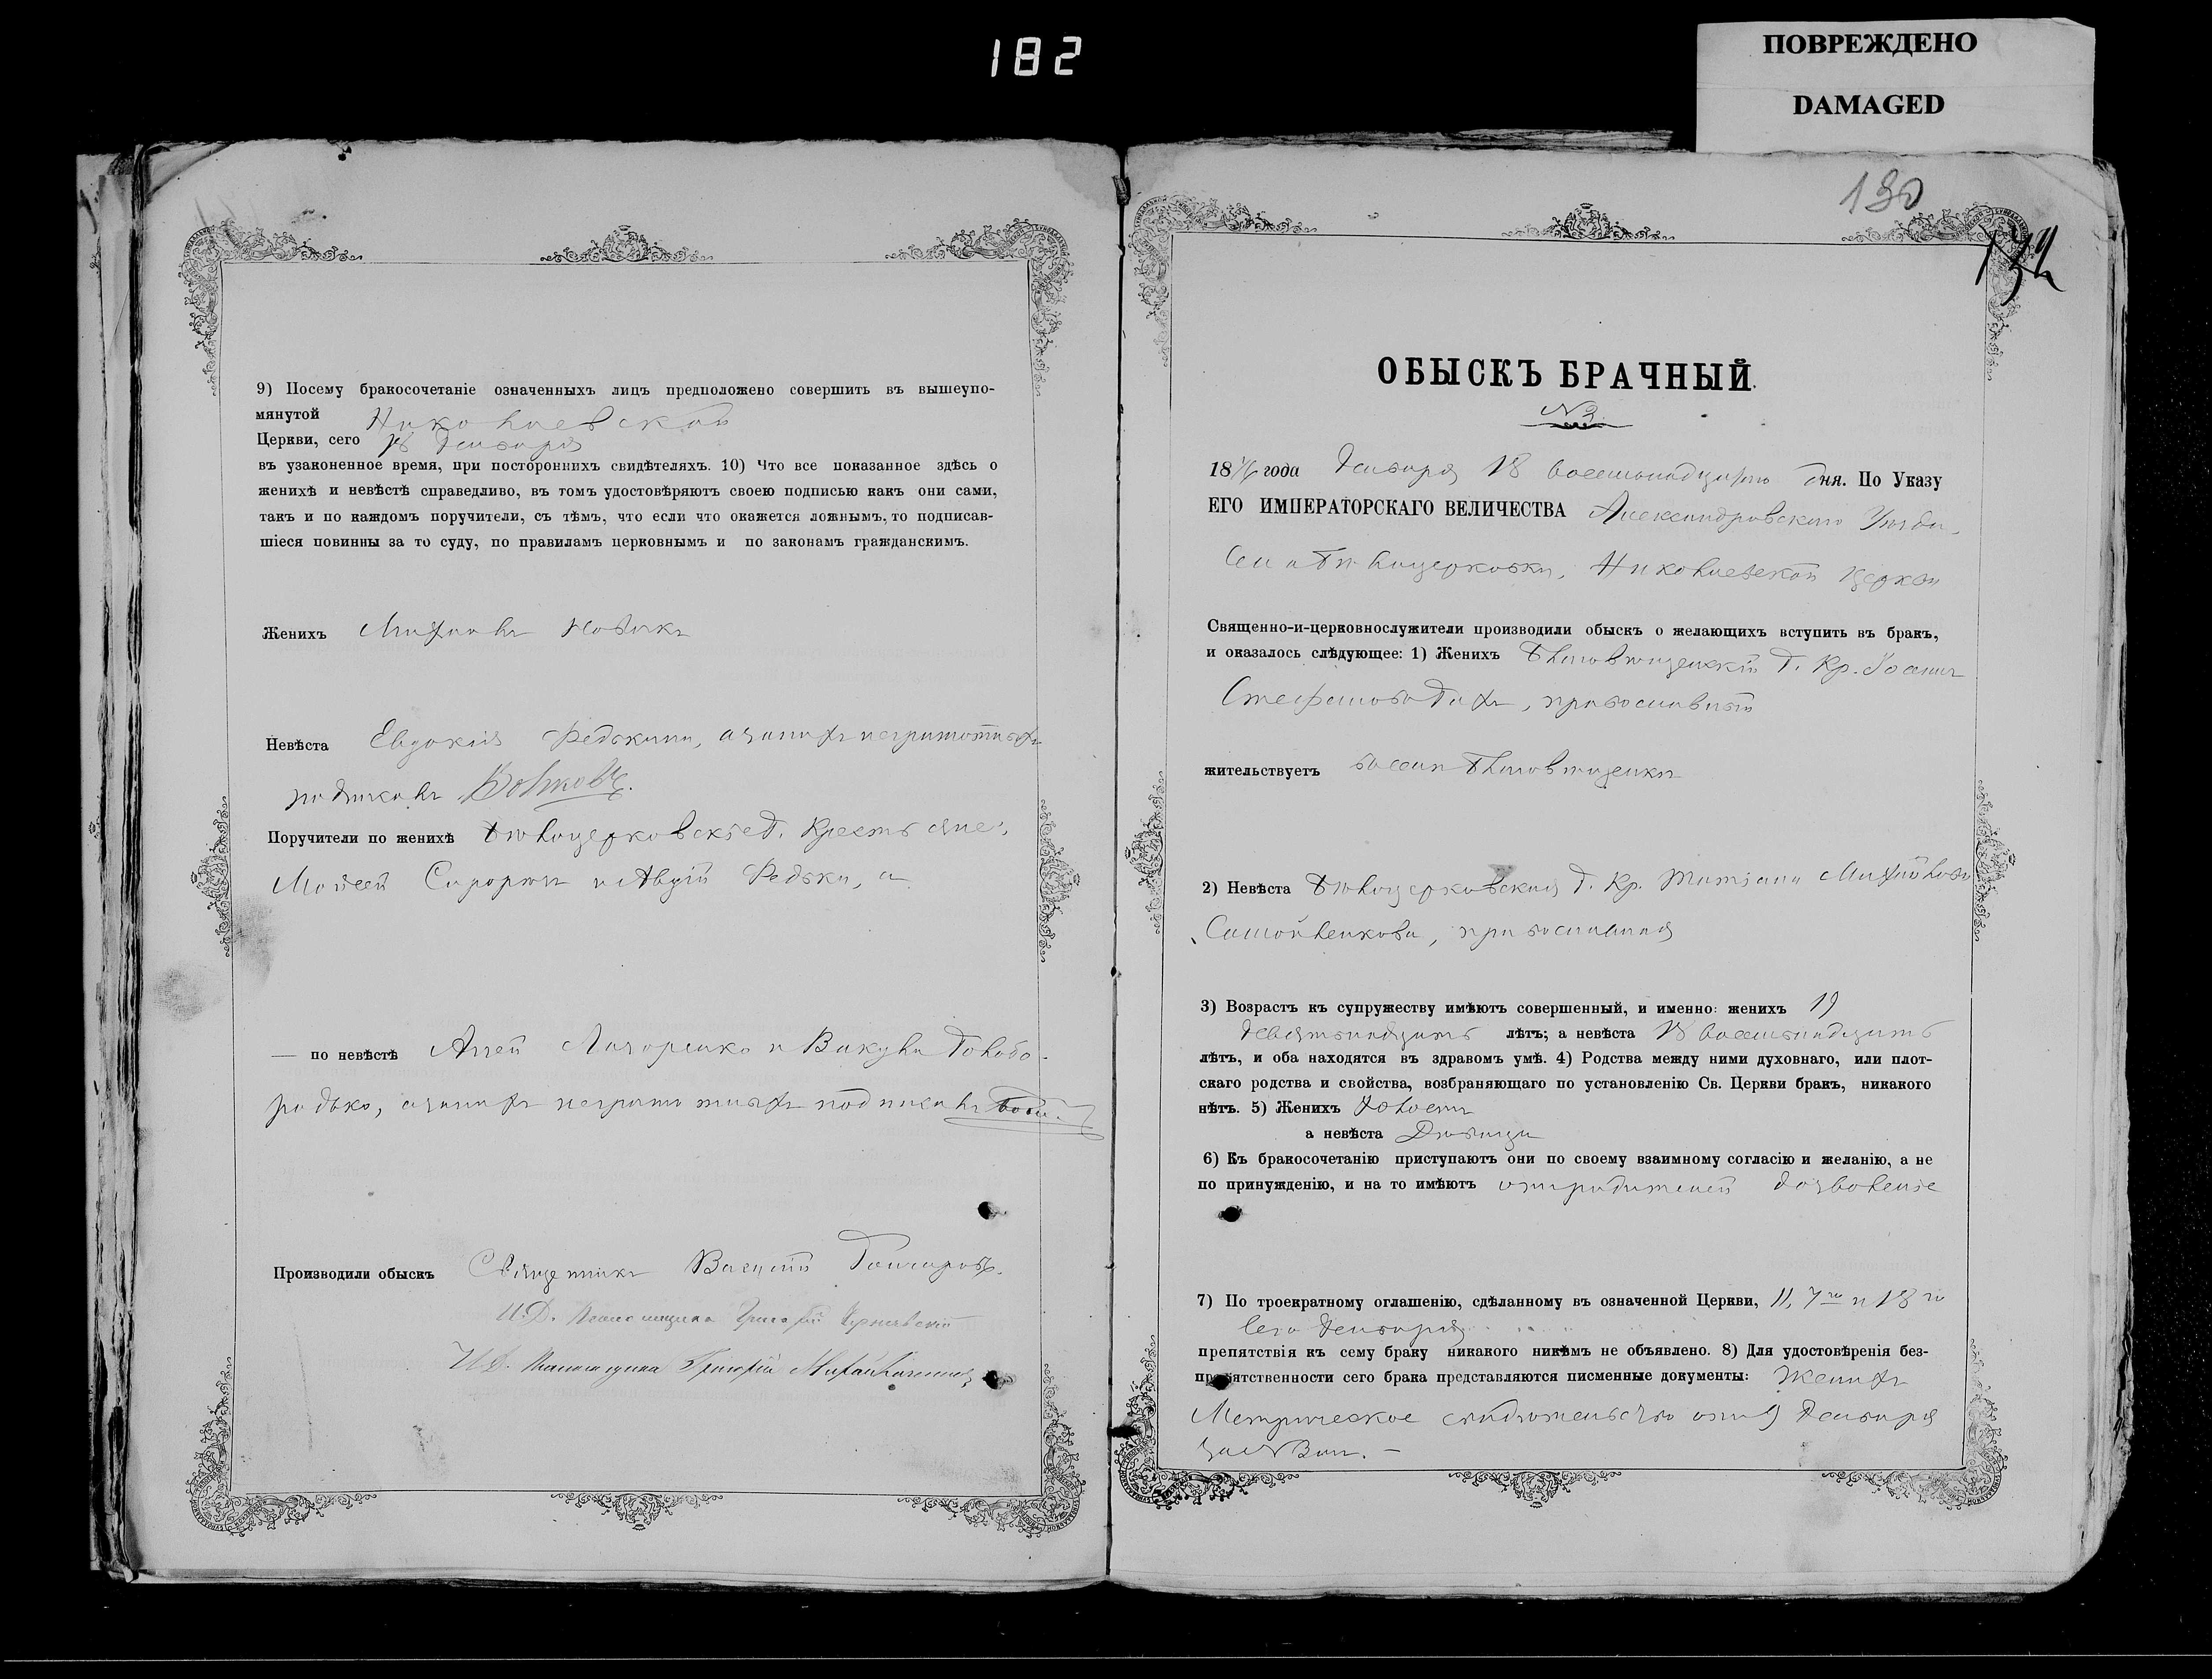 182
ПОВРЕЖДЕНО
DAMAGED
9) Посему бракосочетаніе означенныхъ лицъ предположено совершить въ вышеупо-
мянутой Николаевской
Церкви, сего 18 Генваря
въ узаконенное время, при постороннихъ свидѣтеляхъ. 10) Что все показанное здѣсь о
женихѣ и невѣстѣ справедливо, въ томъ удостовѣряютъ своею подписью какъ они сами,
такъ и по каждомъ поручители, съ тѣмъ, что если что окажется ложнымъ, то подписав-
шіеся повинны за то суду, по правиламъ церковнымъ и по законамъ гражданскимъ.
Женихъ Михаилъ Новакъ
Невѣста Евдокія Федькина, а за нихъ неграмотныхъ
росписалъ Волковъ.
Поручители по женихѣ Бѣлоцерковскіе Г. Крестьяне:
Моисей и Авдій Федьки, а
— по невѣстѣ и Вакула Голобо-
родько, а за нихъ неграмотныхъ подписалъ
Производили обыскъ Священникъ Василій Гончаровъ.
И. Д. Псаломщика Григорій
И. Д. Псаломщика Григорій
130
ОБЫСКЪ БРАЧНЫЙ.
18 года Генваря 18 восемьнадцатаго дня. По Указу
ЕГО ИМПЕРАТОРСКАГО ВЕЛИЧЕСТВА Александровскаго Уѣзда,
Села Бѣлоцерковки, Николаевской церкви
Священно-и-церковнослужители производили обыскъ о желающихъ вступить въ бракъ,
и оказалось слѣдующее: 1) Женихъ Г. Кр. Іоаннъ
Стефановъ Гахъ, православный
жительствуетъ
2) Невѣста Бѣлоцерковская Г. Кр. Татіана Михайлова
Самойленкова, православная
3) Возрастъ къ супружеству имѣютъ совершенный, и именно: женихъ 19
девятьнадцать лѣтъ; а невѣста 18 восемьнадцать
лѣтъ, и оба находятся въ здравомъ умѣ. 4) Родства между ними духовнаго, или плот-
скаго родства и свойства, возбраняющаго по установленію Св. Церкви бракъ, никакого
нѣтъ. 5) Женихъ Холостъ
а невѣста Дѣвица
6) Къ бракосочетанію приступаютъ они по своему взаимному согласію и желанію, а не
по принужденію, и на то имѣютъ отъ родителей дозволеніе
7) По троекратному оглашенію, сдѣланному въ означенной Церкви, 11, 7го и 18го
сего Генваря
препятствія къ сему браку никакого никѣмъ не объявлено. 8) Для удостовѣренія без-
препятственности сего брака представляются писменные документы: Женихъ
Метрическое свидѣтельство отъ 9 Генваря